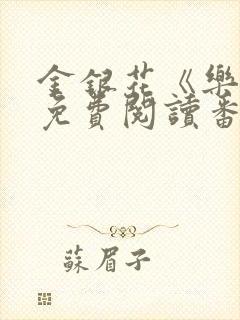 金銀花《樂
免費閱讀番
蘇眉子